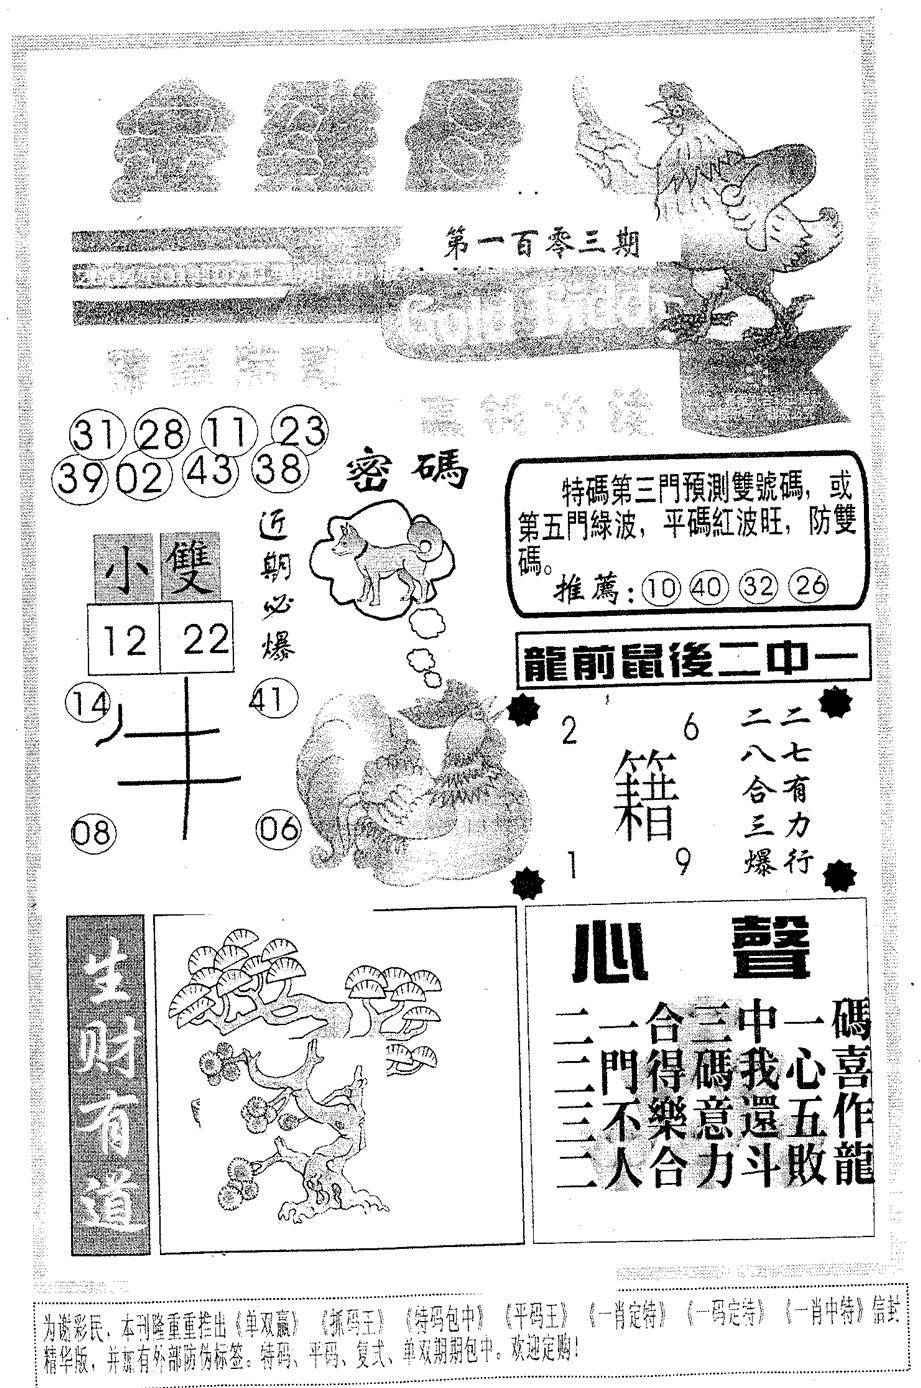 第一百零三期
Gold Bidd
31 28 11 23
39 02 43 38
密碼
近期必爆
小 雙
12 22
14 41
牛
08 06
特碼第三門預測雙號碼，或
第五門綠波，平碼紅波旺，防雙
碼。
推薦：10 40 32 26
龍前鼠後二中一
2 6
籍
1 9
二七有力行
二八合三爆
生财有道
心聲
二一合三中一碼
二門得碼我心喜
三不樂意還五作
二人合力斗敗龍
为谢彩民，本刊隆重重推出《单双赢》《抓码王》《特码包中》《平码王》《一肖定特》《一码定特》《一肖中特》信封
精华版，并加有外部防伪标签。特码、平码、复式、单双期期包中。欢迎定购！